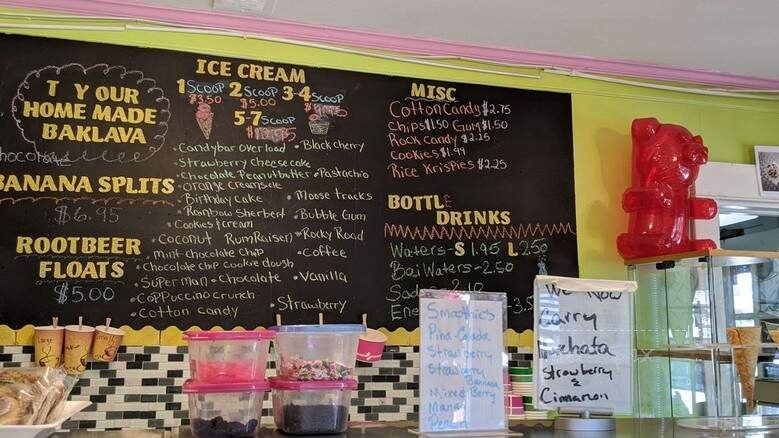 T Y OUR
HOME MADE
BAKLAVA
BANANA SPLITS
$6.95
ROOTBEER
FLOATS
$5.00
ICE CREAM
1 SCOOP 2 SCOOP 3-4 SCOOP
$3.50 $5.00
5-7 SCOOP
• Candybar overload • Black cherry
• Strawberry cheesecake
• Chocolate Peanutbutter • Pastachio
• Orange Creamsicle
• Birthday cake • Moose tracks
• Rainbow Sherbert • Bubble Gum
• Cookies & cream
• Coconut RumRaisen • Rocky Road
• Mint chocolate chip • Coffee
• Chocolate chip cookie dough
• Super man • Chocolate • Vanilla
• Coppuccino crunch
• Cotton candy • Strawberry
MISC
Cotton Candy $2.75
Chips $1.50 Gum $1.50
Rock Candy $2.25
Cookies $1.99
Rice Krispies $2.25
BOTTLE
DRINKS
Waters - S 1.95 L 2.50
Bai Waters - 2.50
Smoothies
Pina-Colada
Strawberry
Strawberry
Banana
Mixed Berry
We Now
Carry
Strawberry
&
Cinnamon